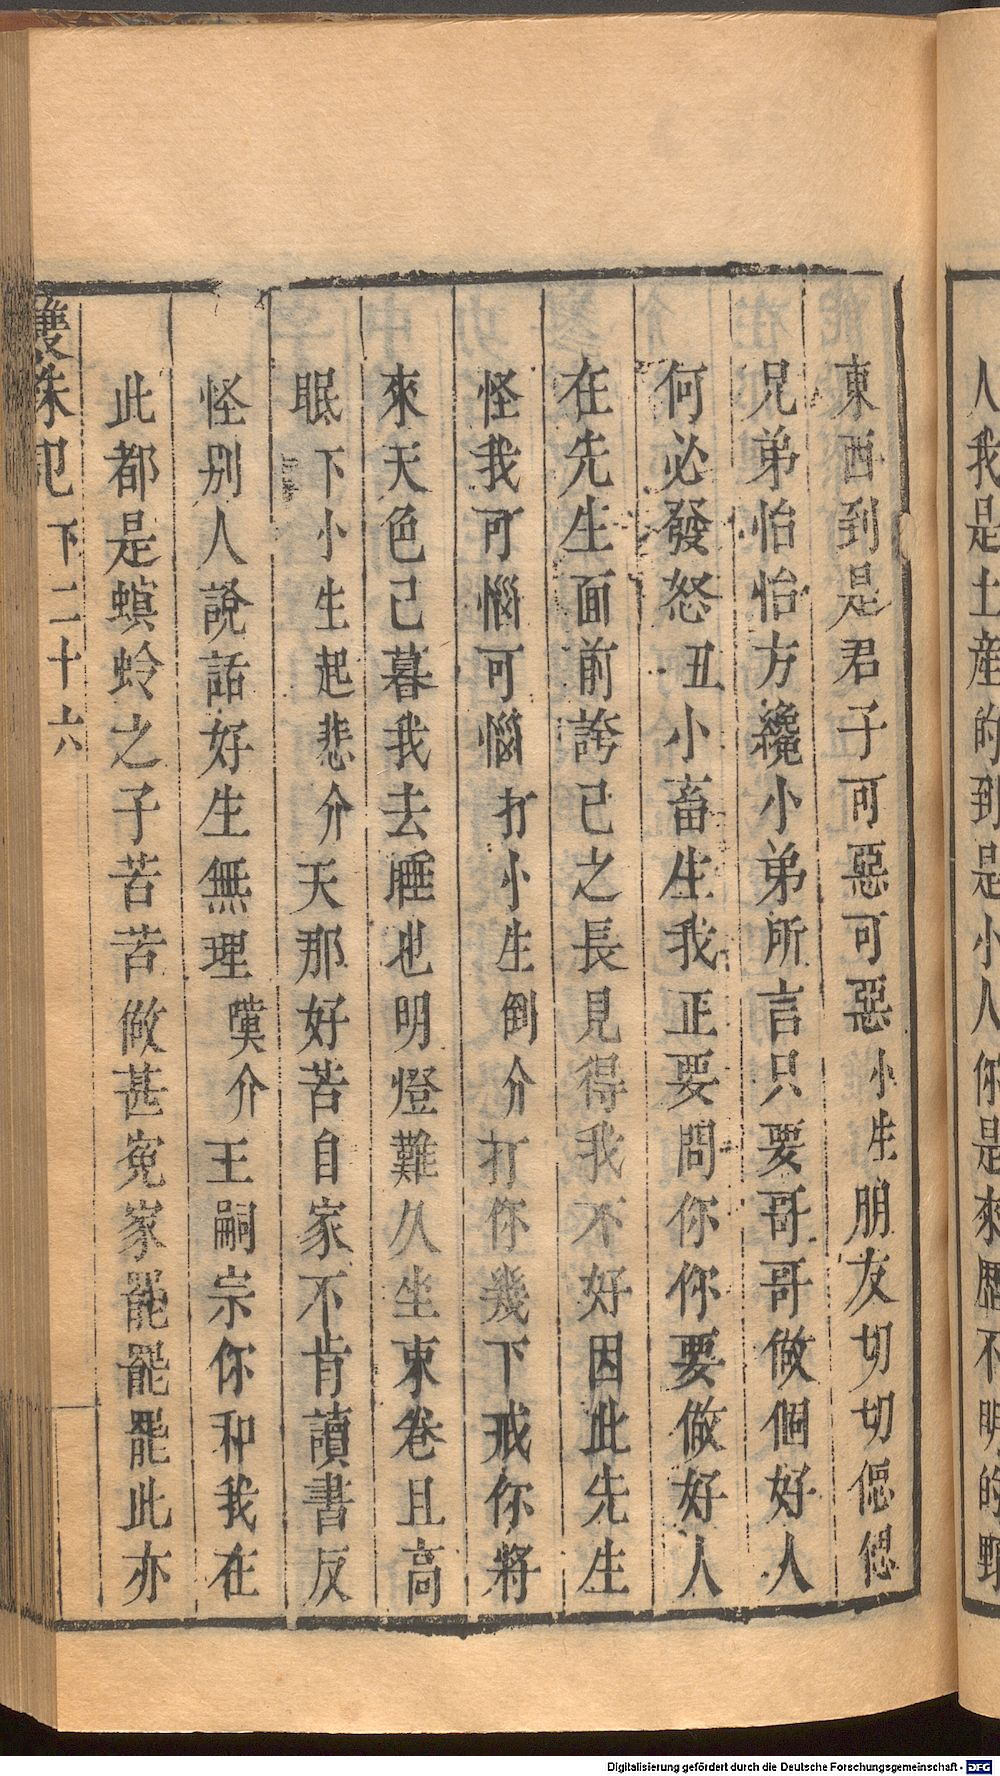 人我是土產的到是小人你是來歷不明的野
東西到是君子可惡可惡小生朋友切切偲偲
兄弟怡怡方纔小弟所言只要哥哥做個好人
何必發怒丑小畜生我正要問你你要做好人
在先生面前誇己之長見得我不好因此先生
怪我可惱可惱打小生倒介打你幾下戒你將
來天色已暮我去睡也明燈難久坐束卷且高
眠下小生起悲介天那好苦自家不肯讀書反
怪別人說話好生無理嘆介王嗣宗你和我在
此都是螟蛉之子苦苦做甚寃家罷罷罷此亦
雙珠記 下二十六
Digitalisierung gefördert durch die Deutsche Forschungsgemeinschaft - DFG